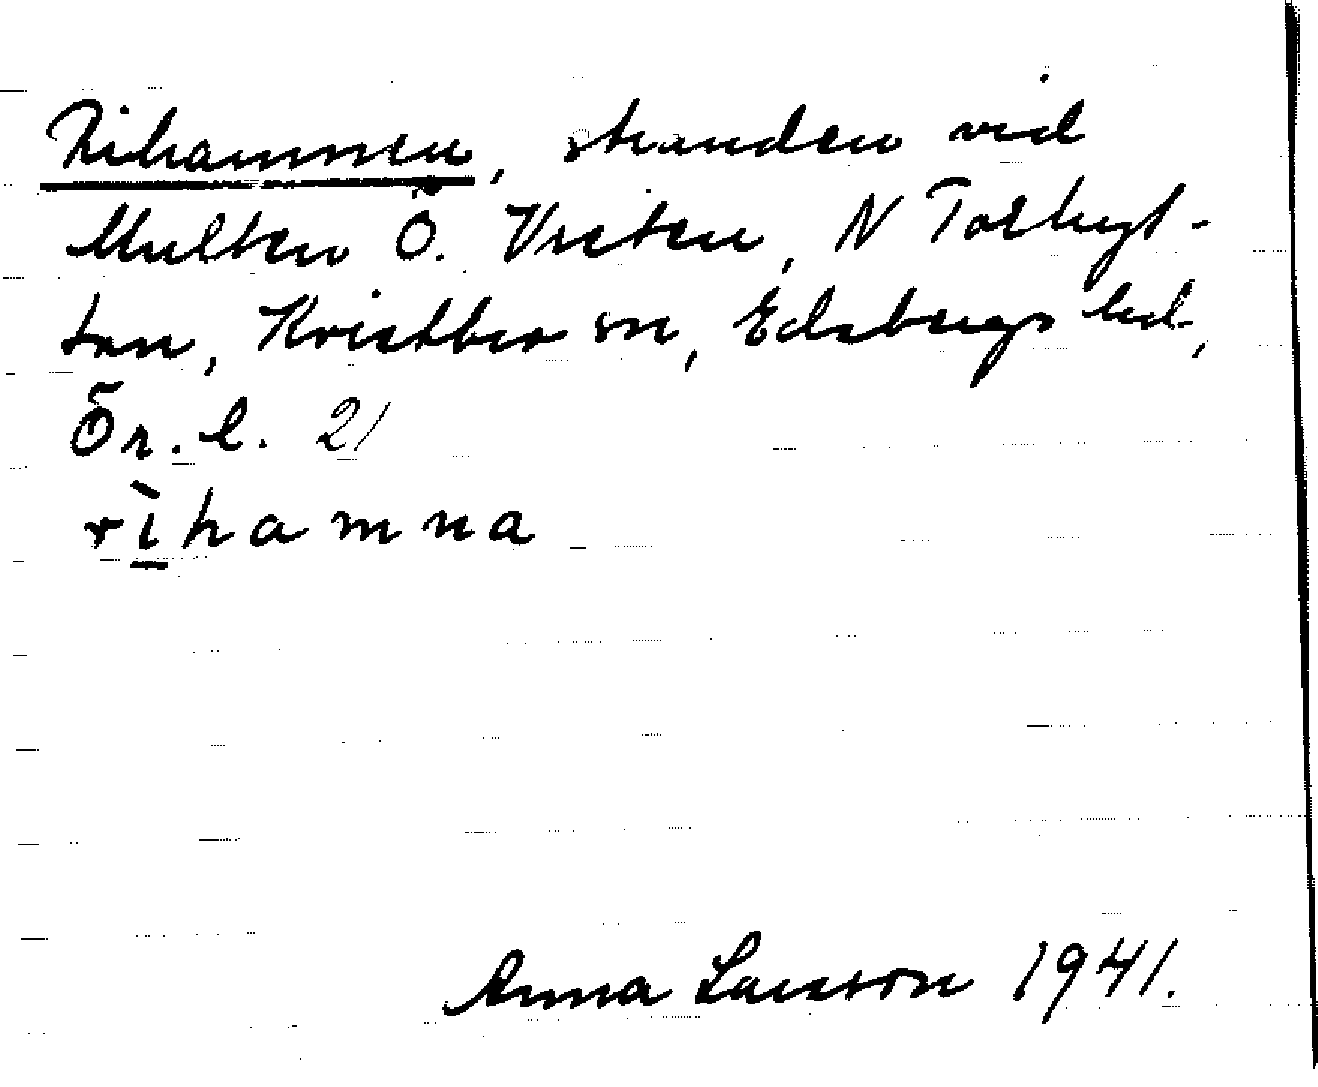 Rihamnen, stranden vid
Multen Ö. Vreten, N Tolhyt-
tan, Kvistbro sn, Edsbergs hd,
Ör. l. 21
rìhamna
Anna Larsson 1941.